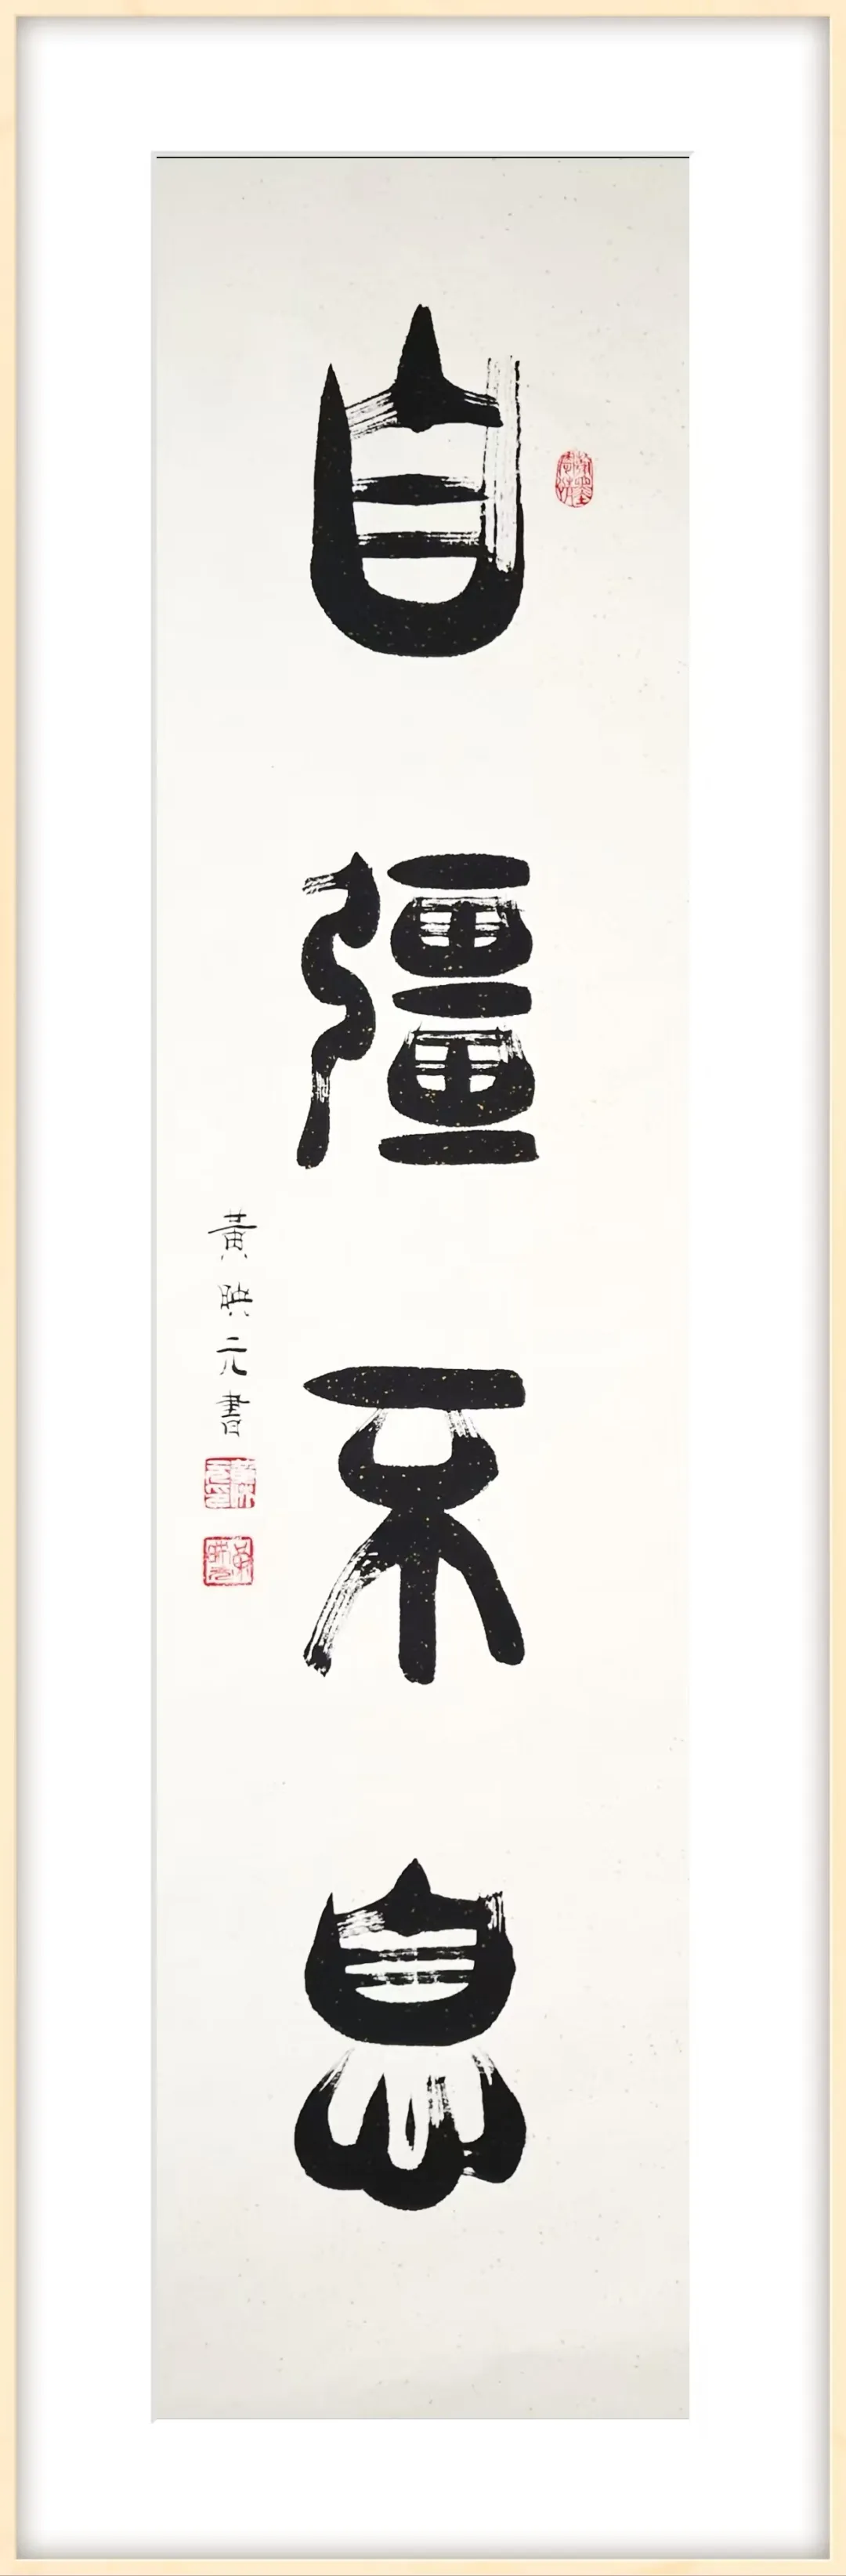 自彊不息
黃映元書